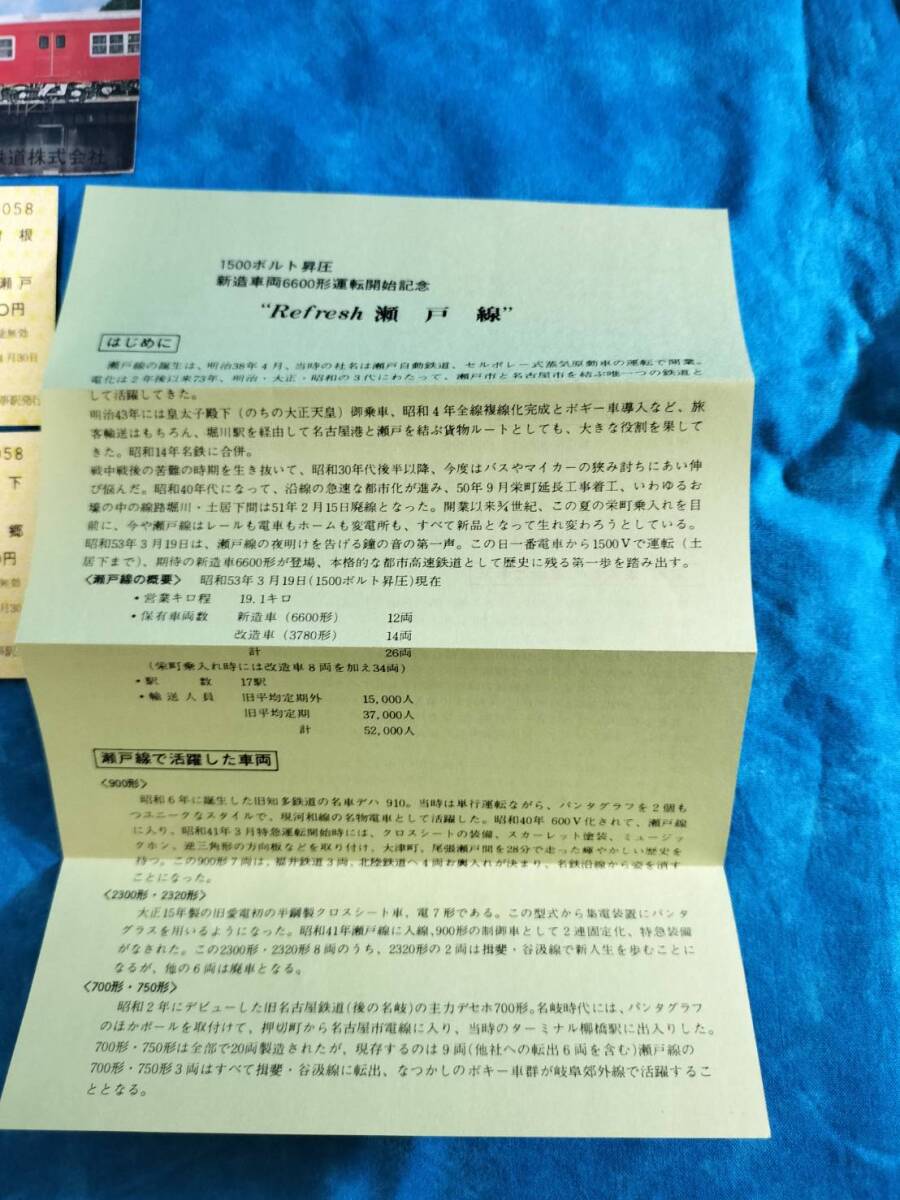 鉄道株式会社
058
根
瀬戸
0円
無効
月30日
駅発行
058
下
郷
円
月30
1500ボルト昇圧
新造車両6600形運転開始記念
"Refresh 瀬戸線"
はじめに
瀬戸線の誕生は、明治38年4月、当時の社名は瀬戸自動鉄道、セルポレー式蒸気原動車の運転で開業。
電化は2年後以来73年、明治・大正・昭和の3代にわたって、瀬戸市と名古屋市を結ぶ唯一つの鉄道と
して活躍してきた。
明治43年には皇太子殿下(のちの大正天皇)御乗車、昭和4年全線複線化完成とボギー車導入など、旅
客輸送はもちろん、堀川駅を経由して名古屋港と瀬戸を結ぶ貨物ルートとしても、大きな役割を果して
きた。昭和14年名鉄に合併。
戦中戦後の苦難の時期を生き抜いて、昭和30年代後半以降、今度はバスやマイカーの狭み討ちにあい伸
び悩んだ。昭和40年代になって、沿線の急速な都市化が進み、50年9月栄町延長工事着工、いわゆるお
壕の中の線路堀川・土居下間は51年2月15日廃線となった。開業以来¾世紀、この夏の栄町乗入れを目
前に、今や瀬戸線はレールも電車もホームも変電所も、すべて新品となって生れ変わろうとしている。
昭和53年3月19日は、瀬戸線の夜明けを告げる鐘の音の第一声。この日一番電車から1500Vで運転(土
居下まで)、期待の新造車6600形が登場、本格的な都市高速鉄道として歴史に残る第一歩を踏み出す。
〈瀬戸線の概要〉 昭和53年3月19日(1500ボルト昇圧)現在
・営業キロ程 19.1キロ
・保有車両数 新造車(6600形) 12両
改造車(3780形) 14両
計 26両
(栄町乗入れ時には改造車8両を加え34両)
・駅数 17駅
・輸送人員 旧平均定期外 15,000人
旧平均定期 37,000人
計 52,000人
瀬戸線で活躍した車両
〈900形〉
昭和6年に誕生した旧知多鉄道の名車デハ910。当時は単行運転ながら、パンタグラフを2個も
つユニークなスタイルで、現河和線の名物電車として活躍した。昭和40年600V化されて、瀬戸線
に入り、昭和41年3月特急運転開始時には、クロスシートの装備、スカーレット塗装、ミュージッ
クホン、逆三角形の方向板などを取り付け、大津町、尾張瀬戸間を28分で走った輝やかしい歴史を
持つ。この900形7両は、福井鉄道3両、北陸鉄道へ4両お輿入れが決まり、名鉄沿線から姿を消す
ことになった。
〈2300形・2320形〉
大正15年製の旧愛電初の半鋼製クロスシート車、電7形である。この型式から集電装置にパンタ
グラスを用いるようになった。昭和41年瀬戸線に入線、900形の制御車として2連固定化、特急装備
がなされた。この2300形・2320形8両のうち、2320形の2両は揖斐・谷汲線で新人生を歩むことに
なるが、他の6両は廃車となる。
〈700形・750形〉
昭和2年にデビューした旧名古屋鉄道(後の名岐)の主力デセホ700形。名岐時代には、パンタグラフ
のほかポールを取付けて、押切町から名古屋市電線に入り、当時のターミナル柳橋駅に出入りした。
700形・750形は全部で20両製造されたが、現存するのは9両(他社への転出6両を含む)瀬戸線の
700形・750形3両はすべて揖斐・谷汲線に転出、なつかしのボギー車群が岐阜郊外線で活躍するこ
ととなる。